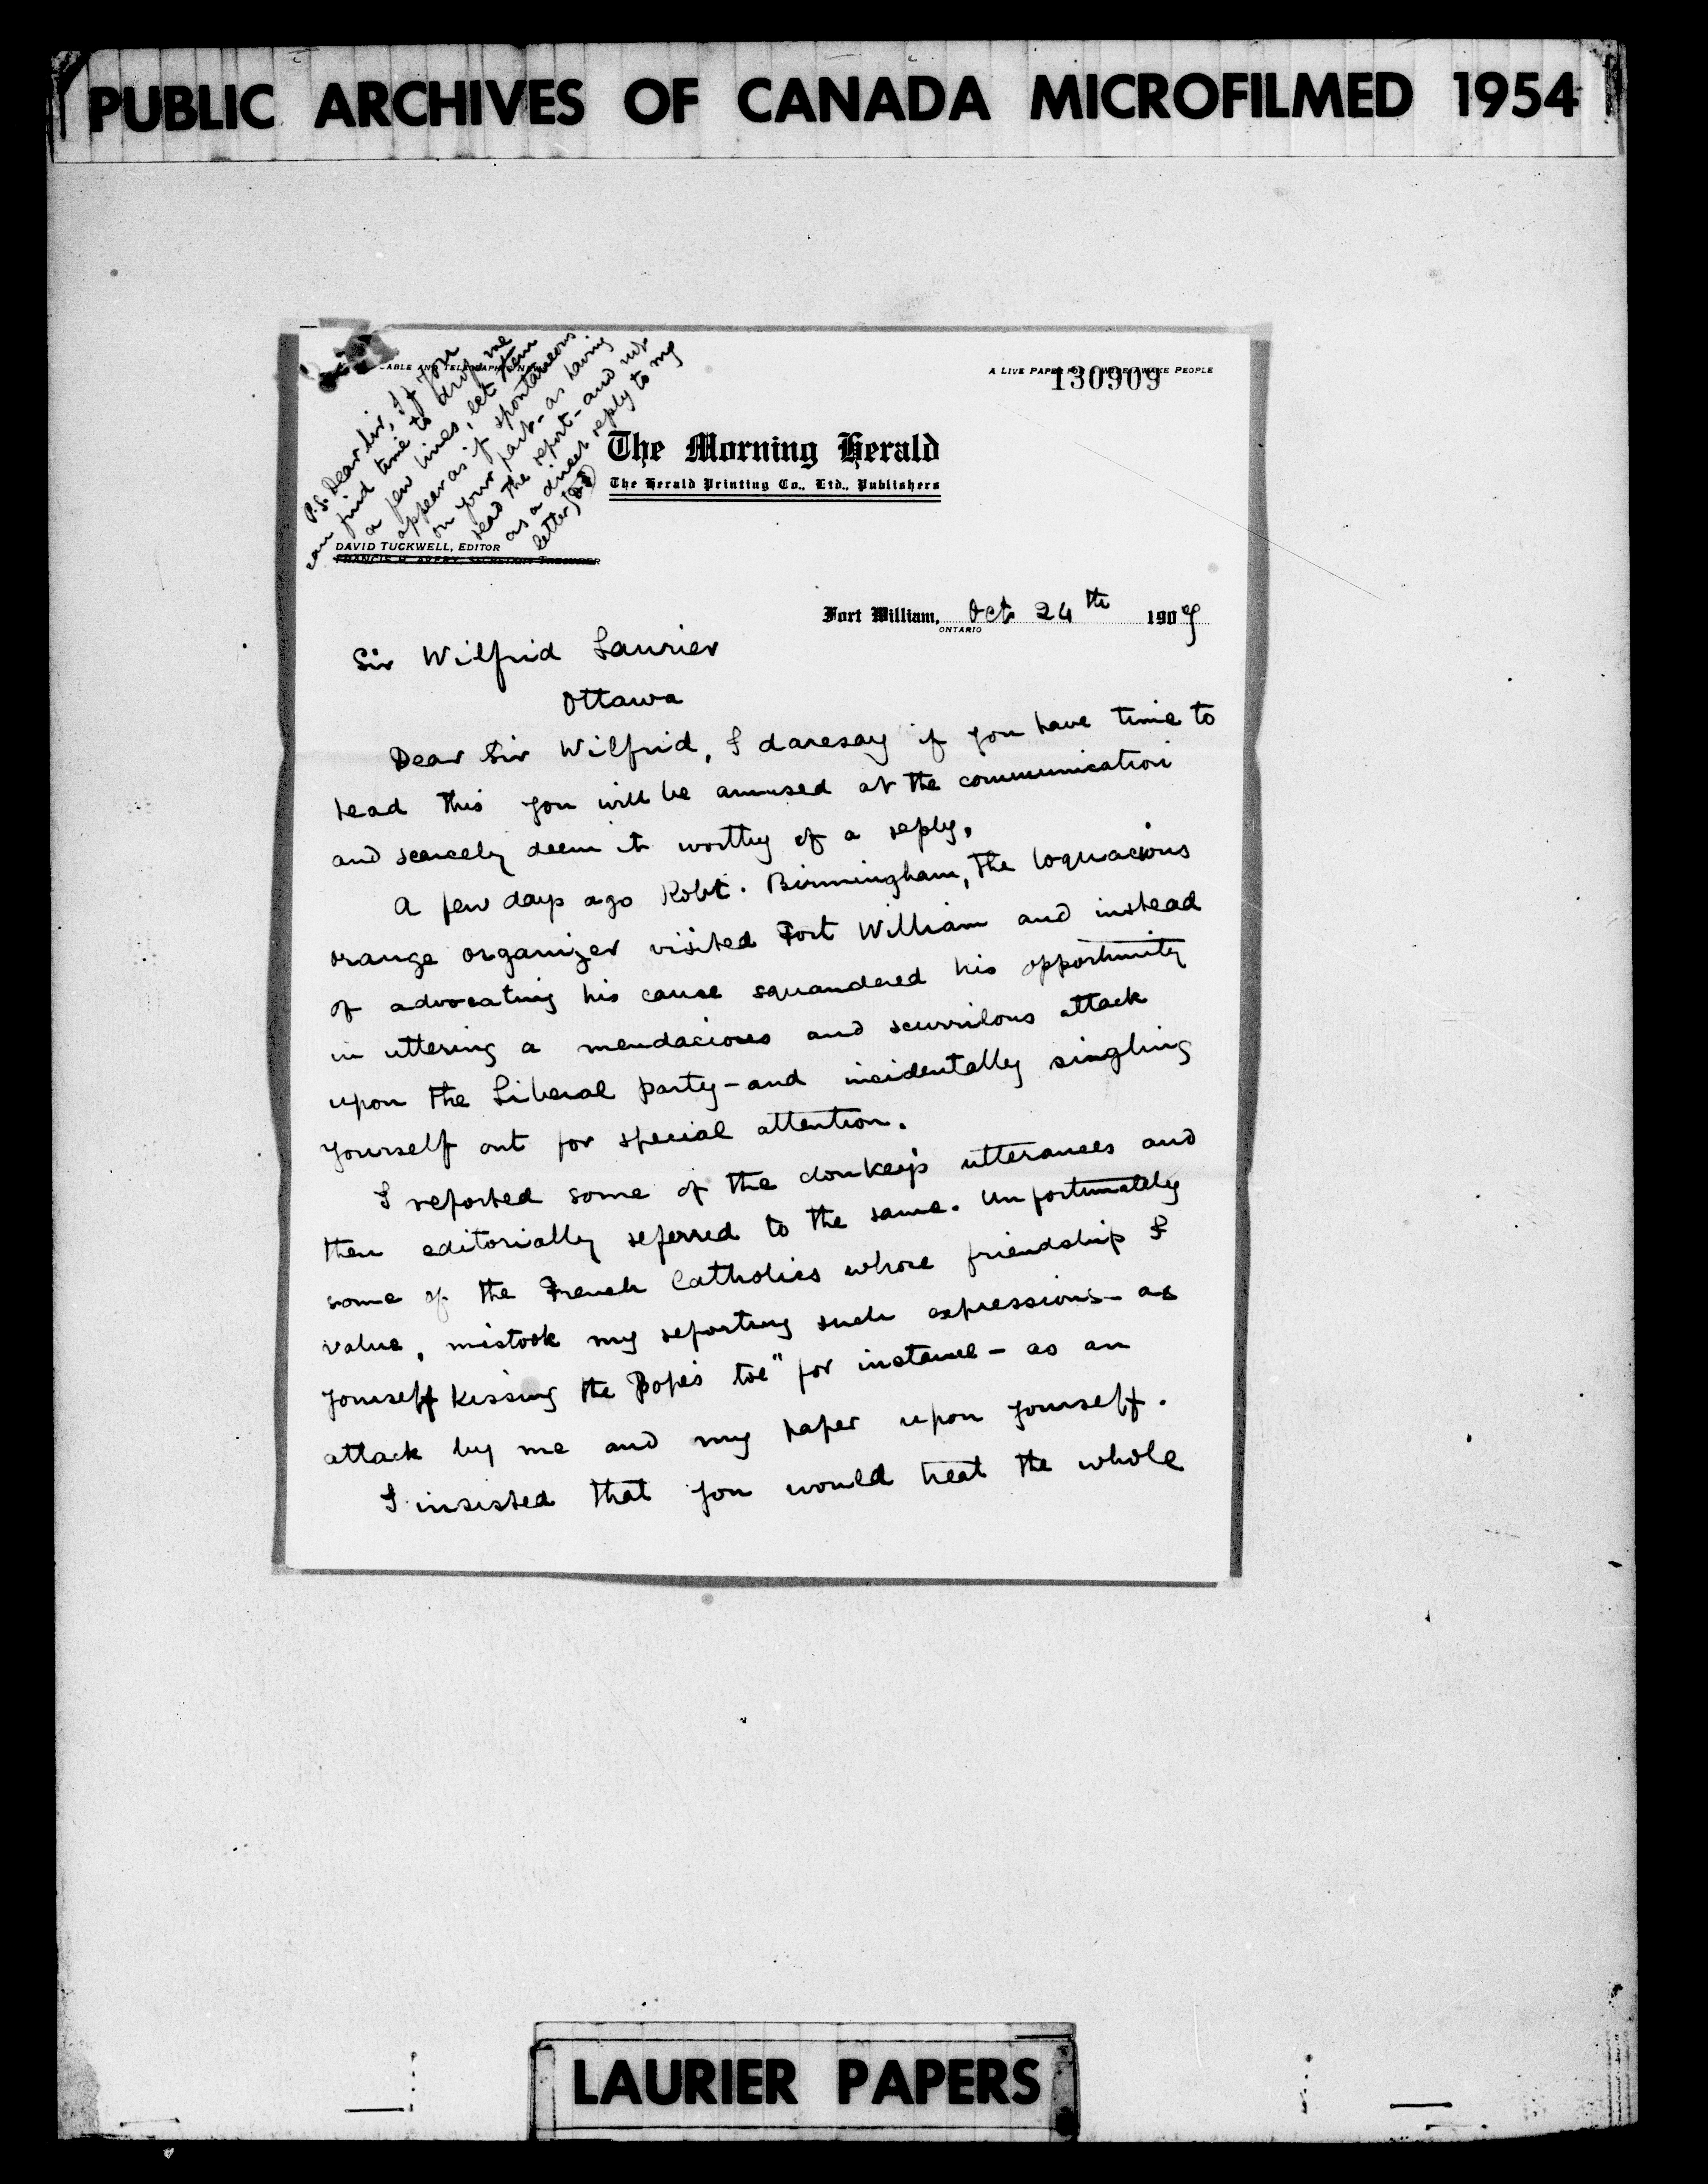 PUBLIC ARCHIVES OF CANADA MICROFILMED 1954
P.S. Dear Sir, If you
can find time to drop me
a few lines, let them
appear as if spontaneous
on your part - as having
read the report - and not
as a direct reply to my
letter,
CABLE AND TELEGRAPHIC NEWS
A LIVE PAPER FOR WIDE AWAKE PEOPLE
130909
The Morning Herald
The Herald Printing Co., Ltd., Publishers
DAVID TUCKWELL, EDITOR
FRANCIS H. AVERY, SECRETARY TREASURER
Fort William, Oct 24th 1909
ONTARIO
Sir Wilfrid Laurier
Ottawa
Dear Sir Wilfrid, I daresay if you have time to
read this you will be amused at the communication
and scarcely deem it worthy of a reply.
A few days ago Robt. Birmingham, the loquacious
orange organizer visited Fort William and instead
of advocating his cause squandered his opportunity
in uttering a mendacious and scurrilous attack
upon the Liberal party - and incidentally singling
yourself out for special attention.
I reported some of the donkey's utterances and
then editorially referred to the same. Unfortunately
some of the French Catholics whose friendship I
value, mistook my reporting such expressions - as
yourself kissing the Pope's toe" for instance - as an
attack by me and my paper upon yourself.
I insisted that you would treat the whole
LAURIER PAPERS